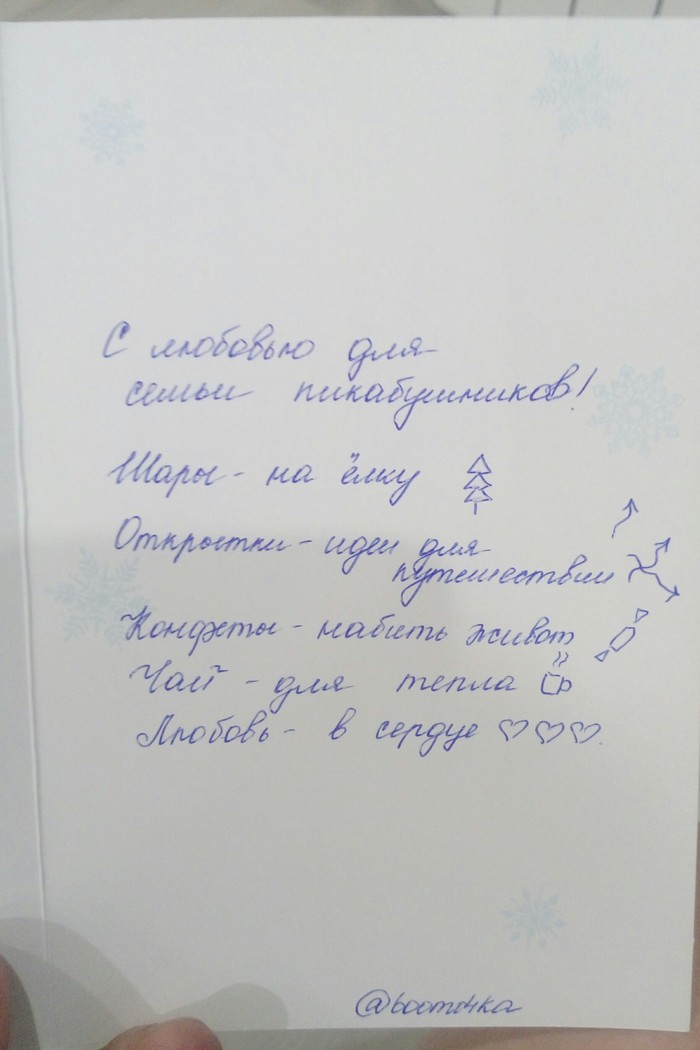 С любовью для
семьи пикабушников!
Шары - на ёлку
Открытки - идеи для
путешествий
Конфеты - набить живот
Чай - для тепла
Любовь - в сердце ♡♡♡